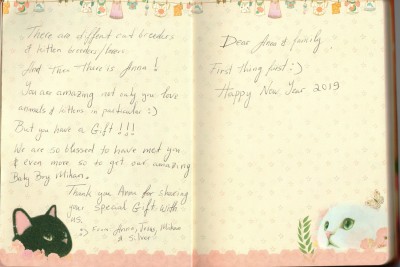 There are different cat breeders
& kitten breeders/lovers
And Then There is Anna!
You are amazing not only you love
animals & kittens in particular :)
But you have a Gift!!!
We are so blessed to have met you
& even more so to get our amazing
Baby Boy Mihan.
Thank you Anna for sharing
your Special Gift with
us.
:) From: Anne, Mihan
& Silver!
Dear Anna & family
First Thing first :)
Happy New Year 2019